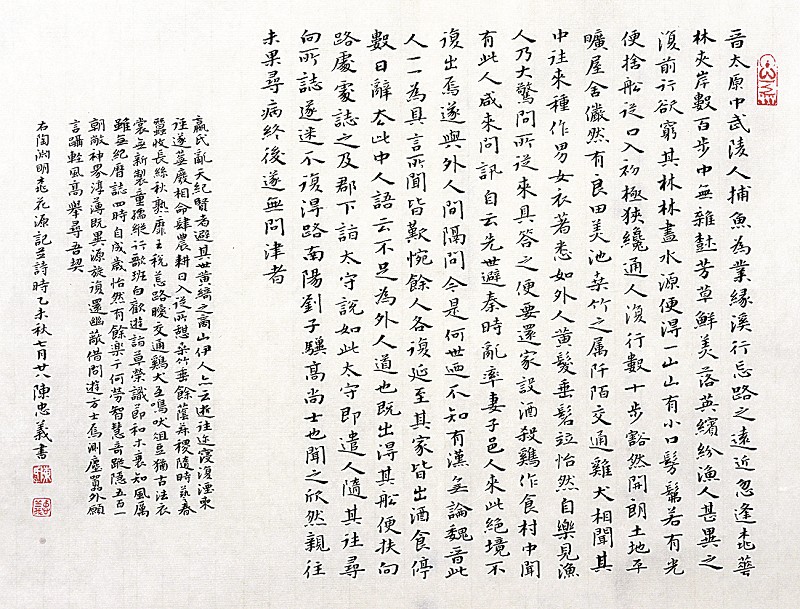 晉太原中武陵人捕魚為業緣溪行忘路之遠近忽逢桃華
林夾岸數百步中無雜樹芳草鮮美落英繽紛漁人甚異之
復前行欲窮其林林盡水源便得一山山有小口髣髴若有光
便捨船從口入初極狹纔通人復行數十步豁然開朗土地平
曠屋舍儼然有良田美池桑竹之属阡陌交通雞犬相聞其
中往來種作男女衣著悉如外人黃髮垂髫竝怡然自樂見漁
人乃大驚問所從來具答之便要還家設酒殺鷄作食村中聞
有此人咸來問訊自云先世避秦時亂率妻子邑人來此絕境不
復出焉遂與外人間隔問今是何世迺不知有漢無論魏晉此
人一一為具言所聞皆歎惋餘人各復延至其家皆出酒食停
數日辭去此中人語云不足為外人道也既出得其船便扶向
路處處誌之及郡下詣太守說如此太守即遣人隨其往尋
向所誌遂迷不復得路南陽劉子驥高尚士也聞之欣然親往
未果尋病終後遂無問津者
嬴氏亂天紀賢者避其世黃綺之商山伊人亦云逝往迹寖復湮來
逕遂蕪廢相命肆農耕日入從所憩桑竹垂餘蔭菽稷隨時藝春
蠶收長絲秋熟靡王稅荒路曖交通鷄犬互鳴吠俎豆猶古法衣
裳無新製童孺縱行歌班白歡遊詣草榮識節和木衰知風厲
雖無紀曆誌四時自成歲怡然有餘樂于何勞智慧奇蹤隱五百一
朝敞神界淳薄既異源旋復還幽蔽借問遊方士焉測塵囂外願
言躡輕風高舉尋吾契
右陶淵明桃花源記並詩時乙未秋七月廿八陳忠義書